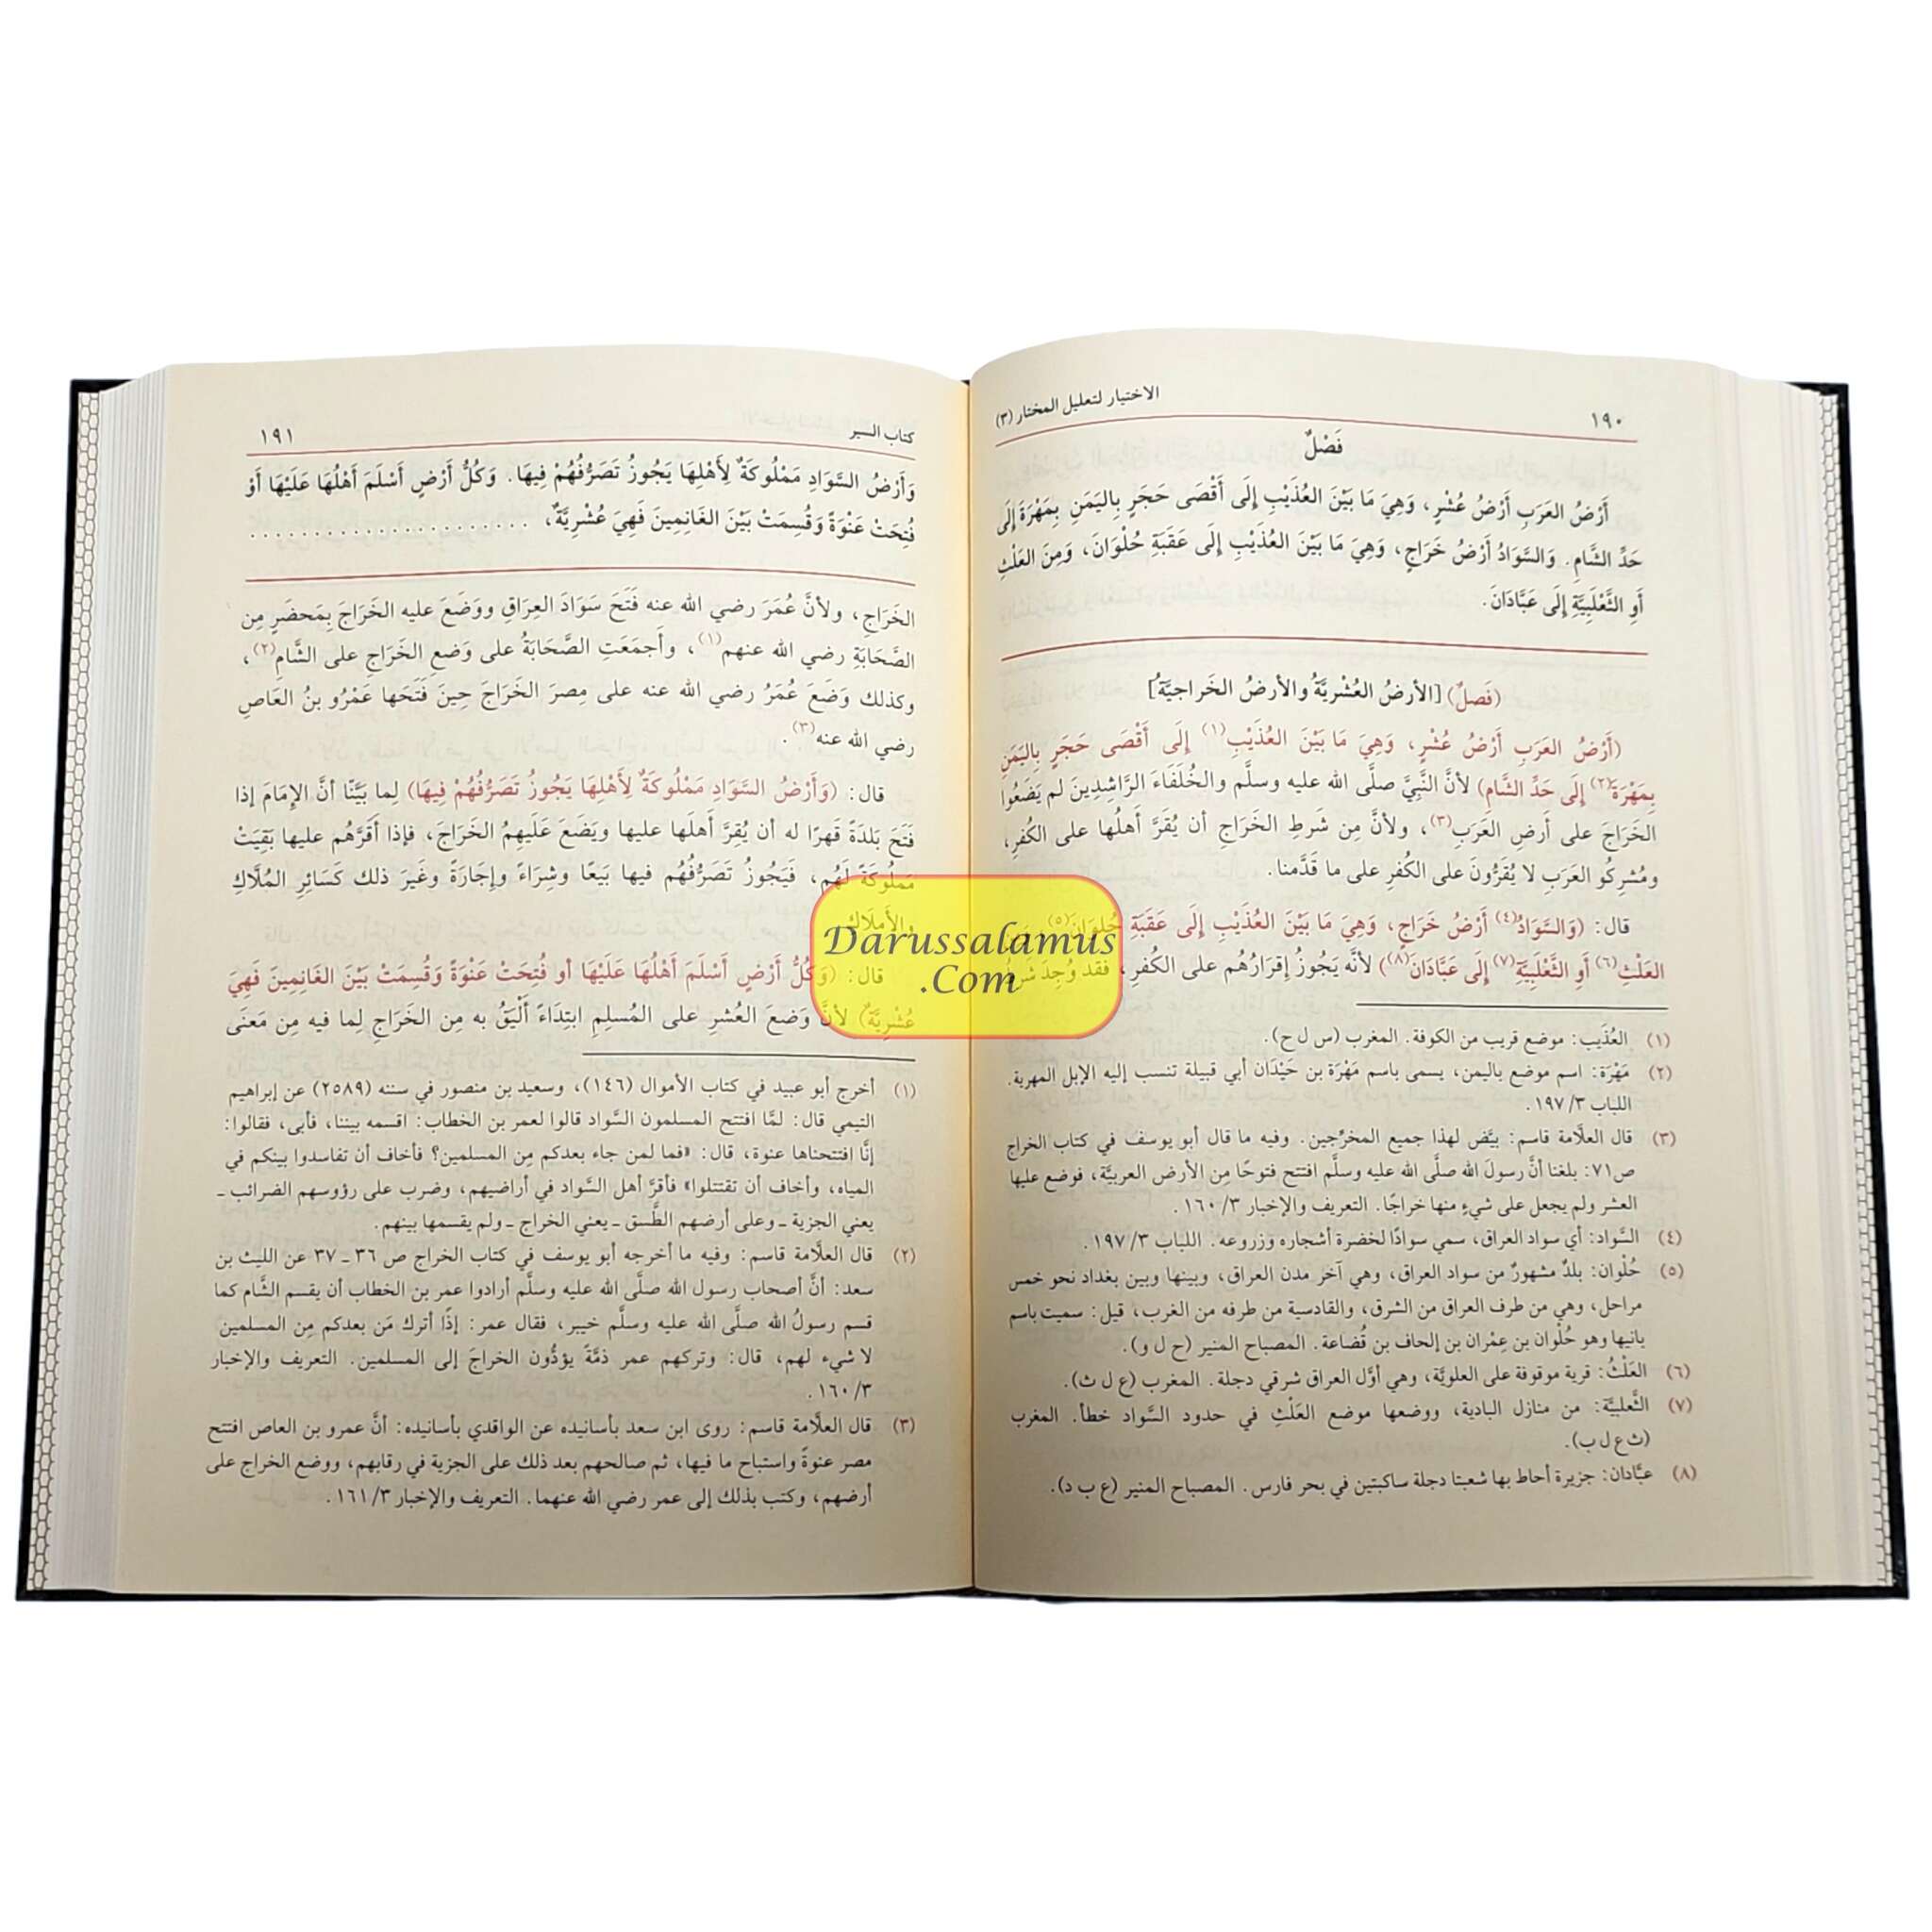 ١٩٠
الاختيار لتعليل المختار (٣)
فَصْلٌ
أَرْضُ العَرَبِ أَرْضُ عُشْرٍ، وَهِيَ مَا بَيْنَ العُذَيْبِ إِلَى أَقْصَى حَجَرٍ بِاليَمَنِ بِمَهْرَةَ إِلَى
حَدِّ الشَّامِ. وَالسَّوَادُ أَرْضُ خَرَاجٍ، وَهِيَ مَا بَيْنَ العُذَيْبِ إِلَى عَقَبَةِ حُلْوَانَ، وَمِنَ العَلْثِ
أَوِ الثَّعْلَبِيَّةِ إِلَى عَبَّادَانَ.
(فَصلٌ) [الأرضُ العُشْريَّةُ والأرضُ الخَراجيَّةُ]
(أَرْضُ العَرَبِ أَرْضُ عُشْرٍ، وَهِيَ مَا بَيْنَ العُذَيْبِ(١) إِلَى أَقْصَى حَجَرٍ بِاليَمَنِ
بِمَهْرَةَ(٢) إِلَى حَدِّ الشَّامِ) لأنَّ النَّبِيَّ صلَّى الله عليه وسلَّم والخُلَفَاءَ الرَّاشِدِينَ لم يَضَعُوا
الخَرَاجَ على أَرضِ العَرَبِ(٣)، ولأنَّ مِن شَرطِ الخَرَاجِ أن يُقَرَّ أَهلُها على الكُفرِ،
ومُشرِكُو العَرَبِ لا يُقَرُّونَ على الكُفرِ على ما قَدَّمنا.
قال: (وَالسَّوَادُ(٤) أَرْضُ خَرَاجٍ، وَهِيَ مَا بَيْنَ العُذَيْبِ إِلَى عَقَبَةِ حُلوَانَ(٥)، وَمِنَ
العَلْثِ(٦) أَوِ الثَّعْلَبِيَّةِ(٧) إِلَى عَبَّادَانَ(٨)) لأنَّه يَجُوزُ إِقرَارُهُم على الكُفرِ، فقد وُجِدَ شَرطُ
(١) العُذَيب: موضع قريب من الكوفة. المغرب (س ل ح).
(٢) مَهْرَة: اسم موضع باليمن، يسمى باسم مَهْرَة بن حَيْدَان أبي قبيلة تنسب إليه الإبل المهرية.
اللباب ٣/ ١٩٧.
(٣) قال العلَّامة قاسم: بيَّض لهذا جميع المخرِّجين. وفيه ما قال أبو يوسف في كتاب الخراج
ص٧١: بلغنا أنَّ رسولَ الله صلَّى الله عليه وسلَّم افتتح فتوحًا مِن الأرض العربيَّة، فوضع عليها
العشر ولم يجعل على شيءٍ منها خراجًا. التعريف والإخبار ٣/ ١٦٠.
(٤) السَّواد: أي سواد العراق، سمي سوادًا لخضرة أشجاره وزروعه. اللباب ٣/ ١٩٧.
(٥) حُلْوان: بلدٌ مشهورٌ من سواد العراق، وهي آخر مدن العراق، وبينها وبين بغداد نحو خمس
مراحل، وهي من طرف العراق من الشرق، والقادسية من طرفه من الغرب، قيل: سميت باسم
بانيها وهو حُلْوان بن عِمْران بن إلحاف بن قُضاعة. المصباح المنير (ح ل و).
(٦) العَلْثُ: قرية موقوفة على العلويَّة، وهي أوَّل العراق شرقي دجلة. المغرب (ع ل ث).
(٧) الثَّعلبيَّة: من منازل البادية، ووضعها موضع العَلْثِ في حدود السَّواد خطأ. المغرب
(ث ع ل ب).
(٨) عبَّادان: جزيرة أحاط بها شعبتا دجلة ساكبتين في بحر فارس. المصباح المنير (ع ب د).
كتاب السير
١٩١
وَأَرْضُ السَّوَادِ مَمْلُوكَةٌ لِأَهْلِهَا يَجُوزُ تَصَرُّفُهُمْ فِيهَا. وَكُلُّ أَرْضٍ أَسْلَمَ أَهْلُهَا عَلَيْهَا أَوْ
فُتِحَتْ عَنْوَةً وَقُسِمَتْ بَيْنَ الغَانِمِينَ فَهِيَ عُشْرِيَّةٌ، . . . . . . . . . . . . . . . . . . . . . .
الخَرَاجِ، ولأنَّ عُمَرَ رضي الله عنه فَتَحَ سَوَادَ العِرَاقِ ووَضَعَ عليه الخَرَاجَ بِمَحضَرٍ مِن
الصَّحَابَةِ رضي الله عنهم(١)، وأَجمَعَتِ الصَّحَابَةُ على وَضعِ الخَرَاجِ على الشَّامِ(٢)،
وكذلك وَضَعَ عُمَرُ رضي الله عنه على مِصرَ الخَرَاجَ حِينَ فَتَحَها عَمْرُو بنُ العَاصِ
رضي الله عنه(٣).
قال: (وَأَرْضُ السَّوَادِ مَمْلُوكَةٌ لِأَهْلِهَا يَجُوزُ تَصَرُّفُهُمْ فِيهَا) لِما بَيَّنَّا أنَّ الإِمَامَ إذا
فَتَحَ بَلدَةً قَهرًا له أن يُقِرَّ أَهلَها عليها ويَضَعَ عَلَيهِمُ الخَرَاجَ، فإذا أَقَرَّهُم عليها بَقِيَتْ
مَملُوكَةً لَهُم، فَيَجُوزُ تَصَرُّفُهُم فيها بَيعًا وشِرَاءً وإِجَارَةً وغَيرَ ذلك كَسَائِرِ المُلَّاكِ
والأَملَاكِ.
قال: (وَكُلُّ أَرْضٍ أَسْلَمَ أَهْلُهَا عَلَيْهَا أو فُتِحَتْ عَنْوَةً وَقُسِمَتْ بَيْنَ الغَانِمِينَ فَهِيَ
عُشْرِيَّةٌ) لأنَّ وَضعَ العُشرِ على المُسلِمِ ابتِدَاءً أَلْيَقُ به مِن الخَرَاجِ لِما فيه مِن مَعنَى
(١) أخرج أبو عبيد في كتاب الأموال (١٤٦)، وسعيد بن منصور في سننه (٢٥٨٩) عن إبراهيم
التيمي قال: لمَّا افتتح المسلمون السَّواد قالوا لعمر بن الخطاب: اقسمه بيننا، فأبى، فقالوا:
إنَّا افتتحناها عنوة، قال: «فما لمن جاء بعدكم مِن المسلمين؟ فأخاف أن تفاسدوا بينكم في
المياه، وأخاف أن تقتتلوا» فأقرَّ أهل السَّواد في أراضيهم، وضرب على رؤوسهم الضرائب ـ
يعني الجزية ـ وعلى أرضهم الطَّسق ـ يعني الخراج ـ ولم يقسمها بينهم.
(٢) قال العلَّامة قاسم: وفيه ما أخرجه أبو يوسف في كتاب الخراج ص ٣٦ ـ ٣٧ عن الليث بن
سعد: أنَّ أصحاب رسول الله صلَّى الله عليه وسلَّم أرادوا عمر بن الخطاب أن يقسم الشَّام كما
قسم رسولُ الله صلَّى الله عليه وسلَّم خيبر، فقال عمر: إذًا أترك مَن بعدكم مِن المسلمين
لا شيء لهم، قال: وتركهم عمر ذمَّةً يؤدُّون الخراجَ إلى المسلمين. التعريف والإخبار
٣/ ١٦٠.
(٣) قال العلَّامة قاسم: روى ابن سعد بأسانيده عن الواقدي بأسانيده: أنَّ عمرو بن العاص افتتح
مصر عنوةً واستباح ما فيها، ثم صالحهم بعد ذلك على الجزية في رقابهم، ووضع الخراج على
أرضهم، وكتب بذلك إلى عمر رضي الله عنهما. التعريف والإخبار ٣/ ١٦١.
Darussalamus
.Com